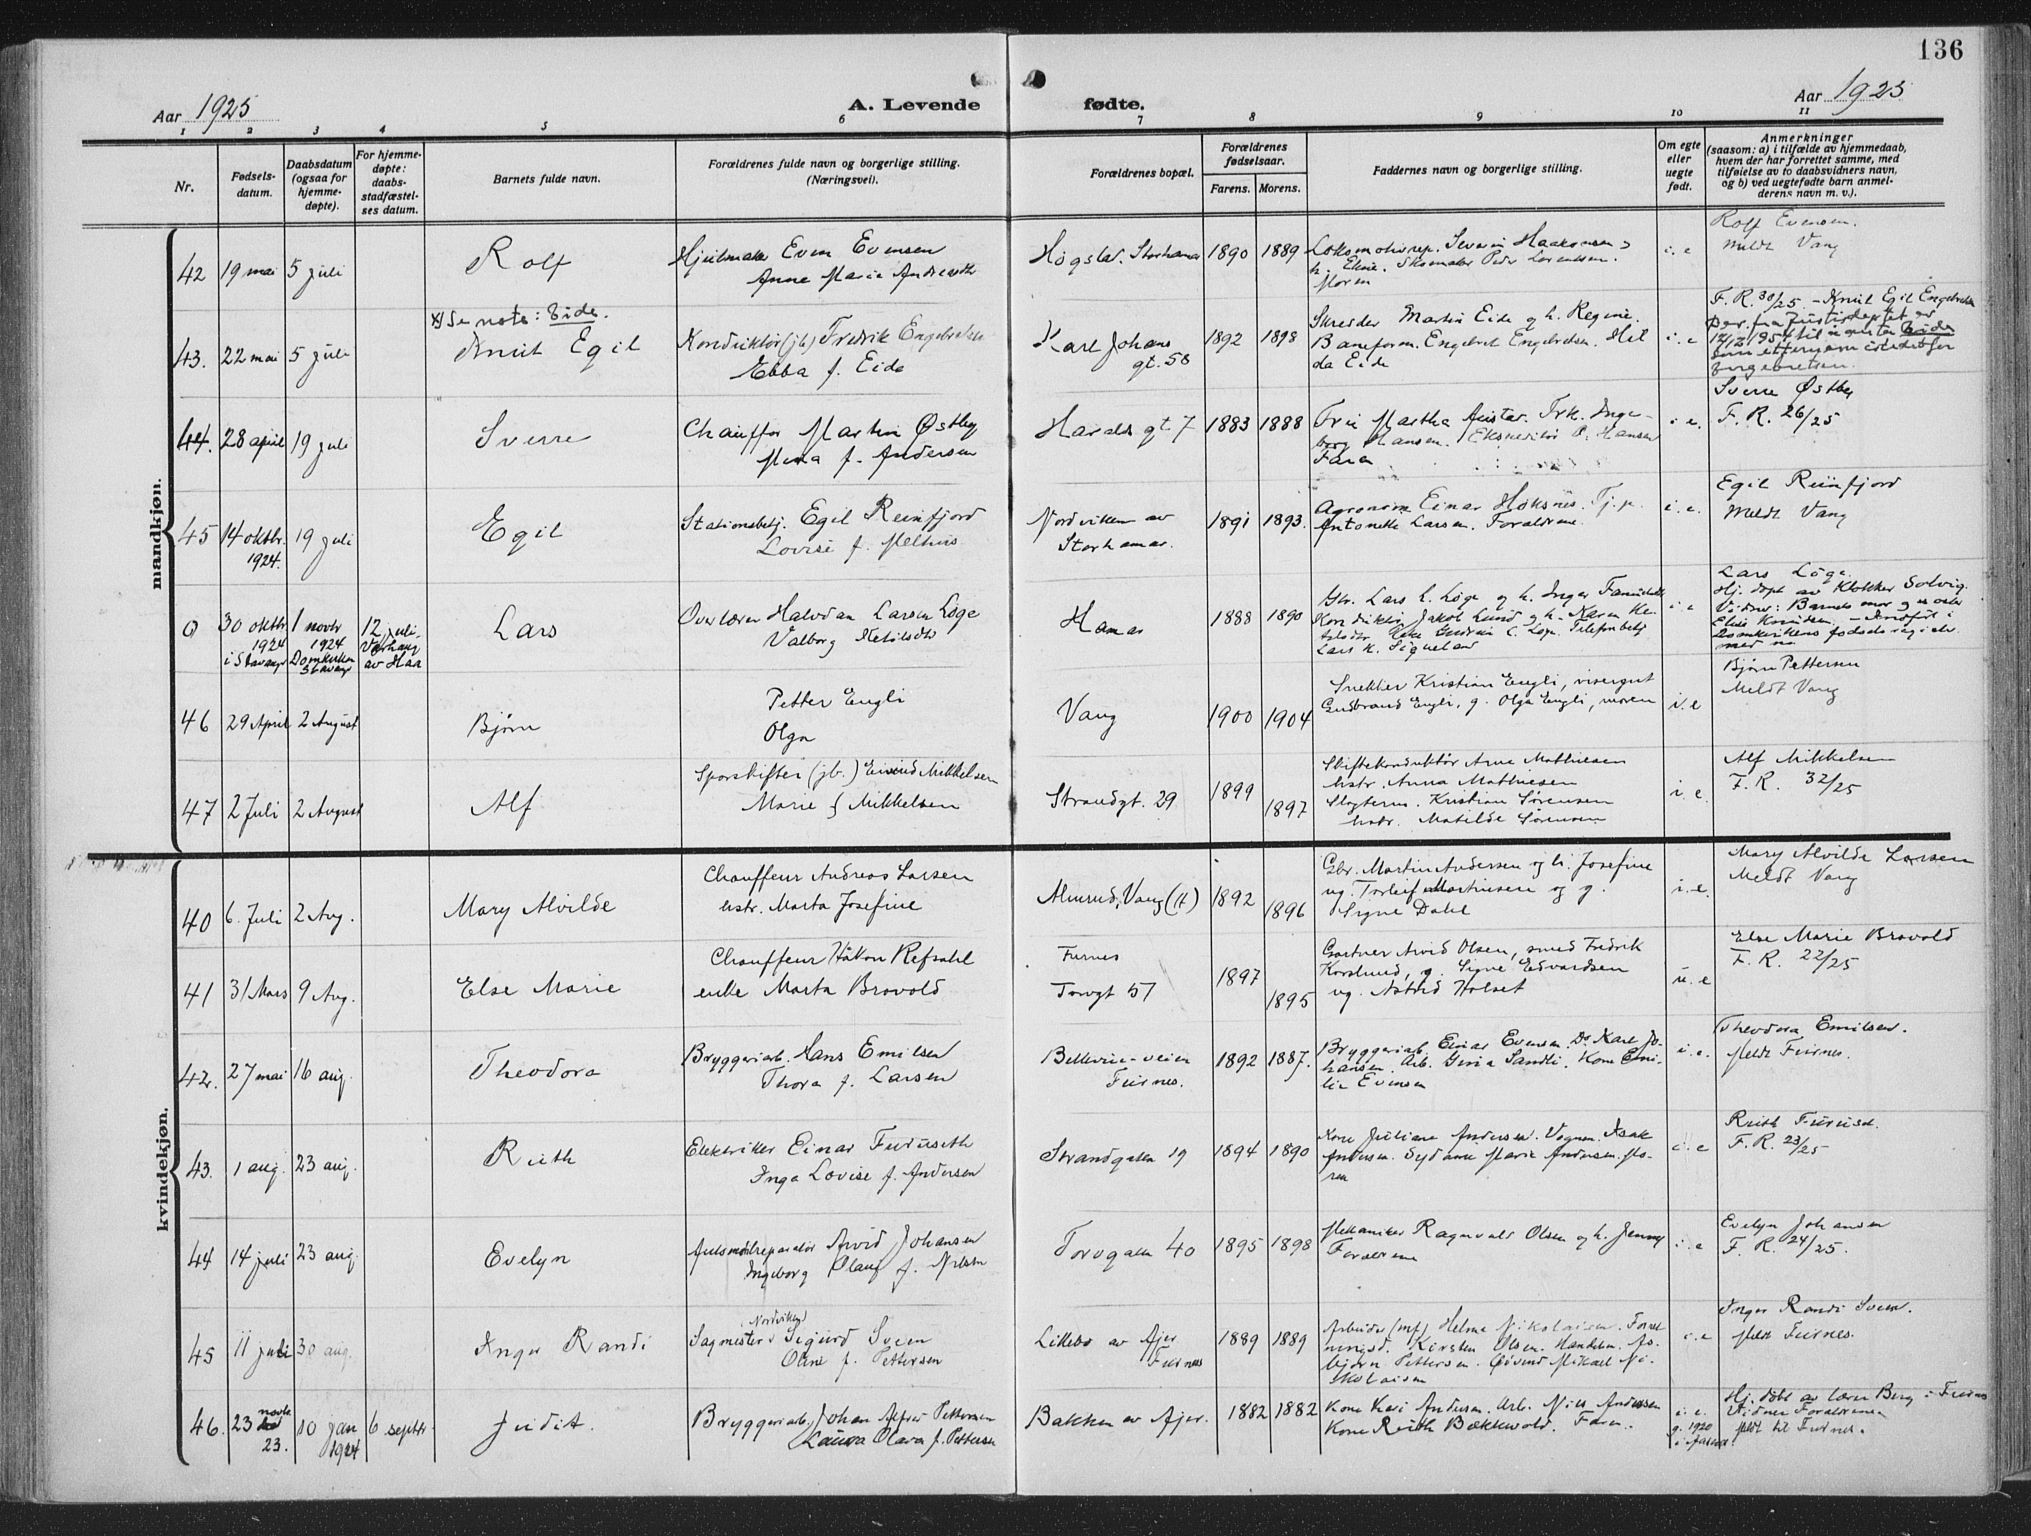 136
Aar 1925
A. Levende fødte.
Aar 1925
1 2 3 4 5 6 7 8 9 10 11
Nr.
Fødsels-
datum.
Daabsdatum
(ogsaa for
hjemme-
døpte).
For hjemme-
døpte:
daabs-
stadfæstel-
ses datum.
Barnets fulde navn.
Forældrenes fulde navn og borgerlige stilling.
(Næringsvei).
Forældrenes bopæl.
Forældrenes
fødselsaar.
Farens. Morens.
Faddernes navn og borgerlige stilling.
Om egte
eller
uegte
født.
Anmerkninger
(saasom: a) i tilfælde av hjemmedaab,
hvem der har forrettet samme, med
tilføielse av to daabsvidners navn,
og b) ved uegtefødte barn anmel-
derens navn m. v.).
mandkjøn.
42 19 mai 5 juli Rolf
Even Evensen
Anne Marie
Storhamar 1890 1889
Skomaker Peder Lorentsen.
Moren
i. e
Rolf Evensen.
Meldt Vang
43. 22 mai 5 juli
x) Se note: Eide.
Knut Egil
Konduktør (jb) Fredrik
Ebba f. Eide
Karl Johans
gt. 58
1892 1898
Martin Eide og h. Regine.
Baneform. Engebret Engebretsen. Hil
da Eide
i. e
F. R. 30/25 – Knut Egil
44. 28 april 19 juli Sverre
Chauffør Martin Østby
f. Andersen
Haralds gt. 7 1883 1888
Fru Martha Austad. Frk. Inge-
borg Hansen. Ekspeditør P. Hansen
Faren
i. e.
Sverre Østby
F. R. 26/25
45 14 oktbr.
1924.
19 juli Egil
Stationsbetj. Egil Reinfjord
Lovise f. Melhus
Nordviken av
Storhamar.
1891 1893.
Agronom Einar
Antonette Larsen. Forældrene.
i. e.
Egil Reinfjord
Meldt Vang
0 30 oktbr
1924
i Stavanger
1 novbr
1924
Domkirken
Stavanger
12 juli
Varhaug
av Haa
Lars
Overlærer Halvdan Larsen Løge
Valborg
Hamar 1888 1890
Gbr. Lars L. Løge og h. Inger
Konduktør Jakob Lund og h. Karen
i. e
Lars Løge.
Hj. døpt av Klokker Solvig.
46 29 April 2 August Bjørn
Petter Engli
Olga
Vang 1900 1904
Snekker Kristian Engli, visergut
Gudbrand Engli, g. Olga Engli, moren
i. e
Bjørn Pettersen
Meldt Vang
47 2 Juli 2 August Alf
Sporskifter (jb.) Eivind Mikkelsen
Marie f Mikkelsen
Strandgt. 29 1899 1897
Skiftekonduktør Arne Mathiesen
hstr. Anna Mathiesen
Kristian Sørensen
hstr. Matilde Sørensen
i. e.
Alf Mikkelsen
F. R. 32/25
kvindekjøn.
40 6. Juli 2 Aug. Mary Alvilde
Chauffeur Andreas Larsen
hstr. Marta Josefine
Almrud, Vang (H) 1892 1896
Gbr. Martin Andersen og h. Josefine
ug. Torleif Martinsen og g.
Signe Dahl
i. e.
Mary Alvilde Larsen
Meldt Vang
41 31 Mars 9 Aug. Else Marie
Chauffeur Håkon Refsahl
enke Marta Bravold
Furnes
Torvgt 57
1897 1895
Gartner Arvid Olsen, smed Fredrik
Korslund, g. Signe Edvardsen
ug. Astrid Holset
u. e
Else Marie Bravold
F. R. 22/25
42. 27 mai 16 aug. Theodora
Bryggeriarb. Hans Emilsen
Thora f. Larsen
Bellevue-veien
Furnes.
1892 1887.
Bryggeriarb. Einar Evensen. Do Karl Jo-
hansen. Arb. Gina Sandli. Kone Emi-
lie Evensen
i. e.
Theodora Emilsen.
Meldt Furnes.
43. 1 aug. 23 aug. Ruth
Elektriker Einar Furuseth
Inga Lovise f. Andersen
Strandgaten 19 1894 1890
Kone Juliane Andersen. Vognm. Isak
Andersen. Syldame Marie Andersen. Mo-
ren
i. e
Ruth Furuset.
F. R. 23/25
44 14 juli 23 aug. Evelyn
Automobilreparatør Arvid Johansen
Ingeborg Olaug f. Nilsen
Torvgaten 40 1895 1898
Mekaniker Ragnvald Olsen og h. Jenny
Forældrene
i. e
Evelyn Johansen
F. R. 24/25.
45 11 juli 30 aug. Inger Randi
(Nordviken)
Sagmester Sigurd Sveen
Oline f. Pettersen
Lillebo av Ajer
Furnes
1889 1889
Arbeider (mf) Helmer Nikolaisen. Forret
ningsd. Kirsten Olsen. Handelsm. As-
bjørn Pettersen. Øivind Mikael Ni-
kolaisen
i. e
Inger Randi Sveen.
Meldt Furnes.
46. 23 novbr
23.
10 jan
1924
6 septbr. Judit.
Bryggeriarb. Johan Alfred Pettersen
Laura Olava f. Pettersen
Bakken av Ajer. 1882 1882
Kone Kari Andersen. Arb. Nils Andersen
Kone Ruth Bækkevold. Faren.
i. e.
g. 1920
Hj. døbt av lærer Berg i Furnes
Vidner Forældrene
Meldt til Furnes.